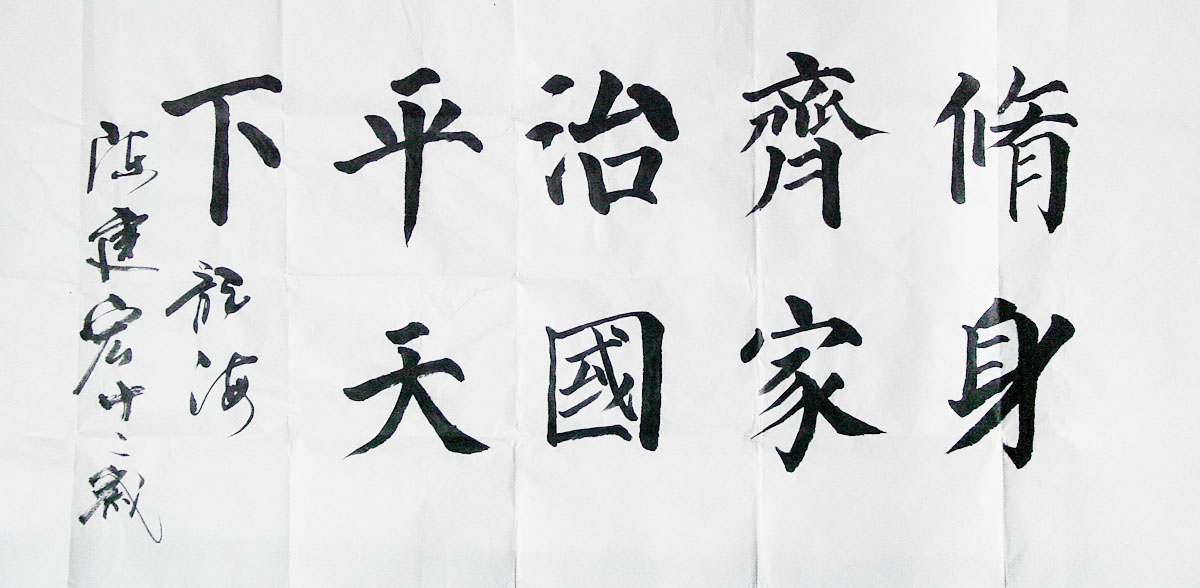 脩身
齊家
治國
平天
下
龍海
陳建宏十二歲